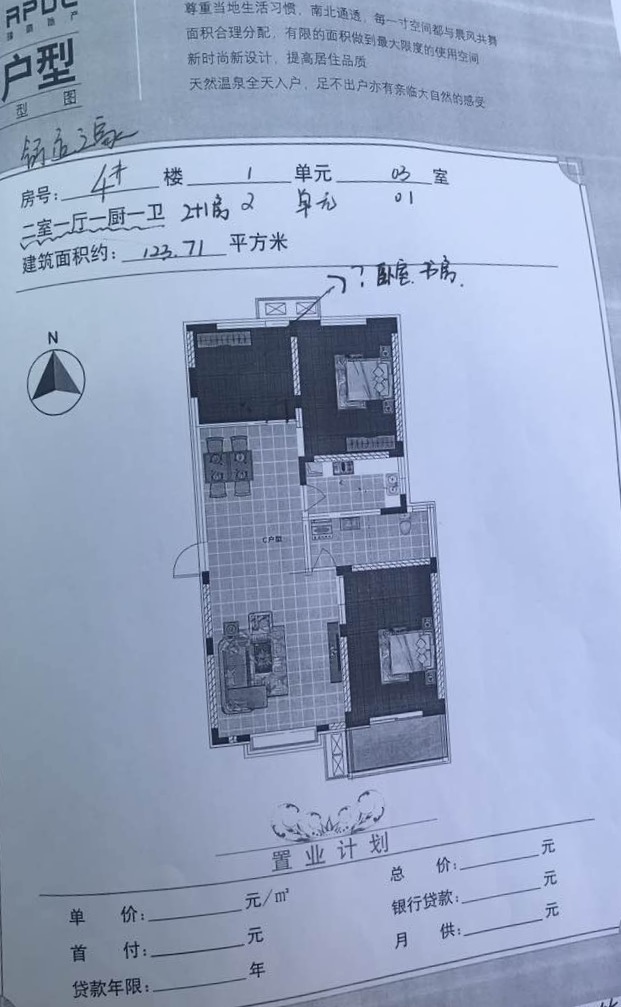 APOC
尊重当地生活习惯，南北通透，每一寸空间都与晨风共舞
面积合理分配，有限的面积做到最大限度的使用空间
新时尚新设计，提高居住品质
天然温泉全天入户，足不出户亦有亲临大自然的感受
户型
型 图
房号: 4# 楼 1 单元 03 室
二室一厅一厨一卫 2+1房 2 单元 01
建筑面积约: 123.71 平方米
? 卧室. 书房.
N
C户型
置业计划
单 价: 元/㎡
总 价: 元
首 付: 元
银行贷款: 元
贷款年限: 年
月 供: 元